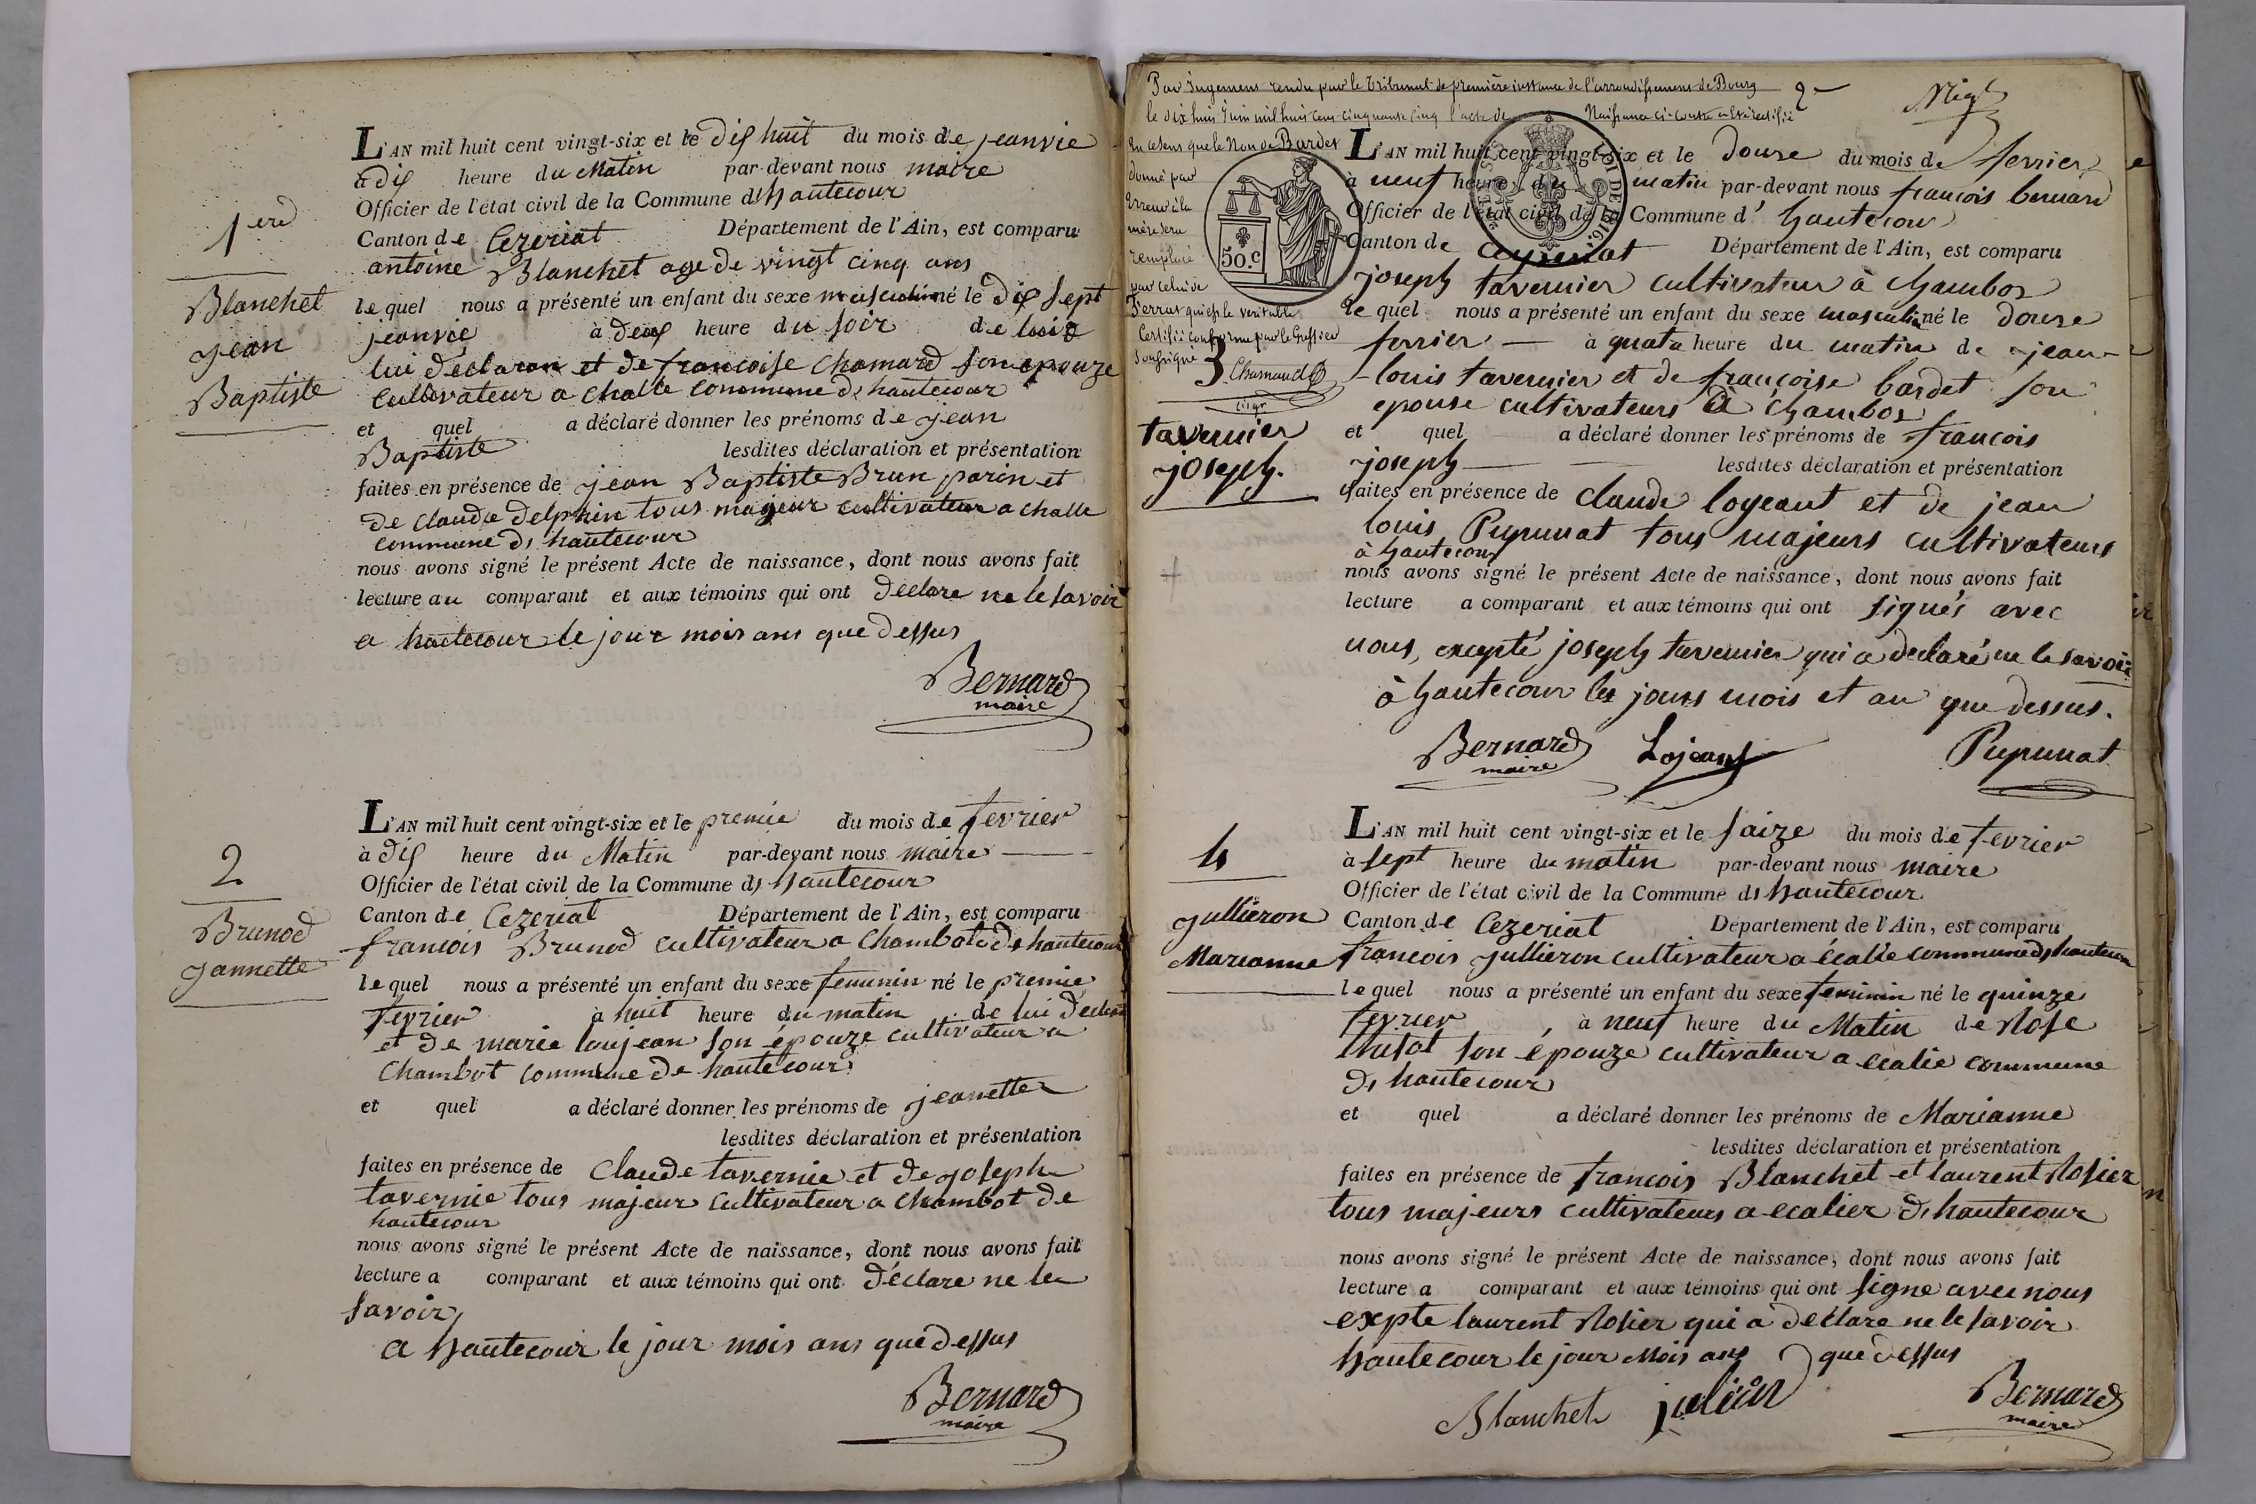 1ere
Blanchet
jean
Baptiste
L'AN mil huit cent vingt-six et le dix huit du mois de jeanvie
à dix heure du Matin par-devant nous maire
Officier de l'état civil de la Commune d'hautecour
Canton de Cezeriat Département de l'Ain, est comparu
antoine Blanchet age de vingt cinq ans
lequel nous a présenté un enfant du sexe masculin né le dix sept
jeanvie à deux heure du soir de
lui déclaran et de francoise Chamard son epouze
Cultivateur a Challe Commune d'hautecour
et quel a déclaré donner les prénoms de jean
Baptiste lesdites déclaration et présentation
faites en présence de jean Baptiste Brun parin et
de claude delphin tous majeur cultivateur a challe
commune d'hautecour
nous avons signé le présent Acte de naissance, dont nous avons fait
lecture au comparant et aux témoins qui ont déclare ne le savoir
a hautecour le jour mois ans que dessus
Bernard
maire
2
Brunod
jannette
L'AN mil huit cent vingt-six et le premie du mois de fevrier
à dix heure du Matin par-devant nous maire
Officier de l'état civil de la Commune d'hautecour
Canton de Cezeriat Département de l'Ain, est comparu
francois Brunod cultivateur a Chambot d'hautecour
lequel nous a présenté un enfant du sexe feminin né le premie
fevrier à huit heure du matin de lui declara
et de marie loujean son épouze cultivateur a
Chambot commune de hautecour
et quel a déclaré donner les prénoms de jeanette
lesdites déclaration et présentation
faites en présence de Claude tavernie et de joseph
tavernie tous majeur Cultivateur a Chambot de
hautecour
nous avons signé le présent Acte de naissance, dont nous avons fait
lecture a comparant et aux témoins qui ont déclare ne le
savoir
a hautecour le jour mois ans que dessus
Bernard
maire
Par Jugement rendu par le Tribunal de première instance de l'arrondissement de Bourg
le dix huit Juin mil huit cent cinquante cinq l'acte de Naissance ci-contre a été rectifié
en ce sens que le Nom de Bardet
donné par
erreur à la
mère sera
remplacé
par celui de
Ferrat qui est le véritable
Certifié conforme par le Greffier
soussigné
Chamaud
2
50.c
3
tavernier
joseph.
L'AN mil huit cent vingt-six et le douze du mois de fevrier
à neuf heure du matin par-devant nous françois bernard
Officier de l'état civil de la Commune d'hautecour
Canton de Ceyzeriat Département de l'Ain, est comparu
joseph tavernier cultivateur à Chambos
le quel nous a présenté un enfant du sexe masculin né le douze
fevrier à quatre heure du matin de jean
louis tavernier et de françoise bardet son
epouse cultivateurs à Chambos
et quel a déclaré donner les prénoms de françois
joseph lesdites déclaration et présentation
faites en présence de claude logeant et de jean
louis Pupunat tous majeurs cultivateurs
à hautecour
nous avons signé le présent Acte de naissance, dont nous avons fait
lecture a comparant et aux témoins qui ont signés avec
nous, excepté joseph tavernier qui a declaré ne le savoir
à hautecour les jours mois et an que dessus.
Bernard
maire
Lojeant
Pupunat
4
jullieron
Marianne
L'AN mil huit cent vingt-six et le saize du mois de fevrier
à sept heure du matin par-devant nous maire
Officier de l'état civil de la Commune d'hautecour
Canton de Cezeriat Département de l'Ain, est comparu
francois jullieron cultivateur a écalie commune d'hautecour
lequel nous a présenté un enfant du sexe feminin né le quinze
fevrier, à neuf heure du Matin de Rose
son épouze cultivateur a ecalie commune
d'hautecour
et quel a déclaré donner les prénoms de Marianne
lesdites déclaration et présentation
faites en présence de francois Blanchet et laurent Rosier
tous majeurs cultivateurs a ecalier d'hautecour
nous avons signé le présent Acte de naissance, dont nous avons fait
lecture a comparant et aux témoins qui ont signe avec nous
expte laurent Rosier qui à déclare ne le savoir
hautecour le jour Mois ans que dessus
Blanchet
Bernard
maire